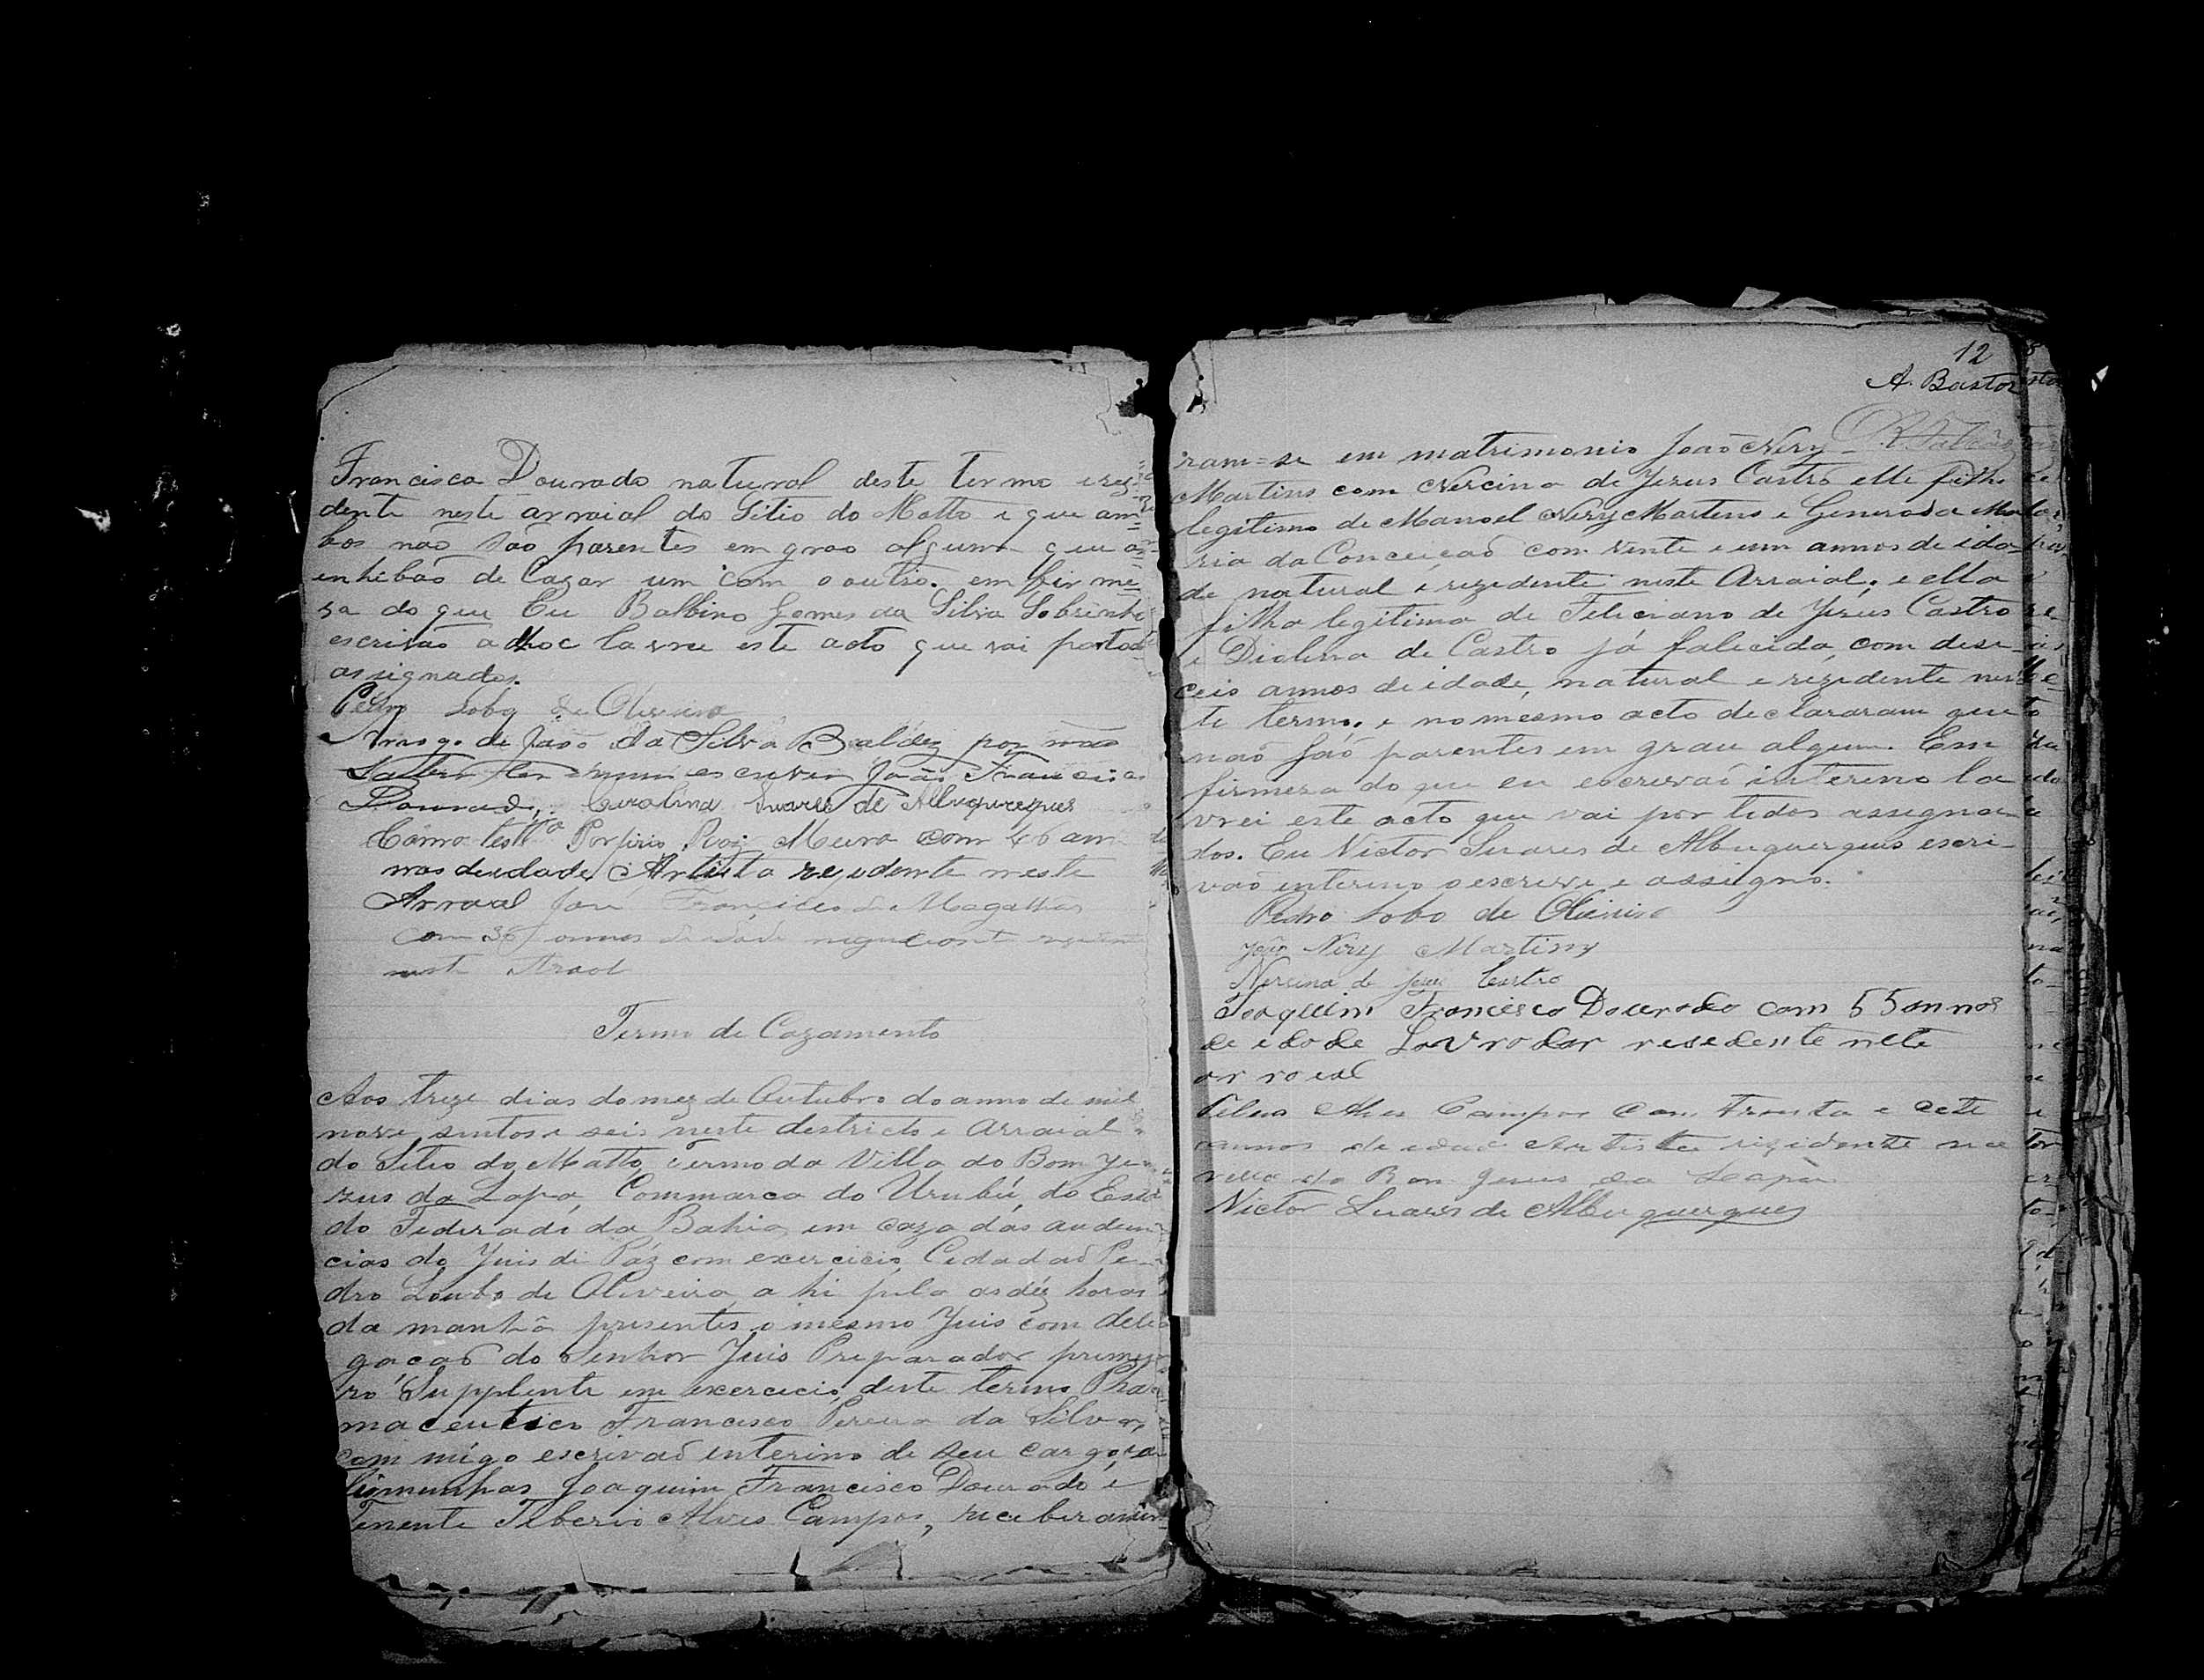 Francisca Dourado natural deste termo e rezi
dente neste arraial do Sitio do Matto e que am=
bos não são parentes em grao algum que os
enhibão de Cazar um com o outro. em firme
sa do que Eu Balbino Gomes da Silva Sobrinho
escrivão adhoc lavrei este acto que vai por todos
assignados.
Pedro Lobo de Oliveira
Arrogo de João da Silva Baldez por não
saber ler e nem escrever João Francisco
Dourado, Carolina Suares de Albuquerques
Como testa Porfirio Roiz Meira com 46 an
nos deidade Artista rezidente neste
Arraial José Francisco de Magalhães
com 36 annos deidade negociante
neste Araol
Termo de Cazamento
Aos treze dias do mez de Outubro do anno de mil
nove sentos e seis neste destricto e Arraial
do Sitio do Matto, termo da Villa do Bom Je
zus da Lapa, Commarca do Urubú, do Esta
do Federado da Bahia em caza das audien
cias do Juis de Páz com exercicio, Cidadaõ Pe
dro Loubo de Oliveira, a hi pela as déz horas
da manhã presentes o mesmo Juis com dele
gacaõ do Senhor Juis Preparador primei
ro Supplente em exercicio, deste termo Phar
maceutico Francisco Pereira da Silva,
com migo escrivaõ interino de seu cargo, tes
timunhas Joaquim Francisco Dourado e
Tenente Tiberio Alves Campos, receberam
12
A. Bastos
ram=se em matrimonio João Nery
Martins com Nercina de Jezus Castro elle filho
legitimo de Manoel Nery Martins e Generoda Ma
ria da Conceiçaõ com vinte e um annos de ida
de natural e rezidente neste Arraial; e ella
filha legitima de Feliciano de Jezus Castro
e Diolina de Castro já falecida, com dese
ceis annos de idade, natural e rezidente nes
te termo, e no mesmo acto declararam que
naõ saõ parentes em grau algum. Em
firmeza do que eu escrivaõ interino la
vrei este acto que vai por todos assigna
dos. Eu Victor Suares de Albuquerques escri
vaõ interino o escrevi e assigno.
Pedro Lobo de Oliveira
João Nery Martins
Nercina de Jezus Castro
Joaquim Francisco Dourado com 55 annos
de idade Lavrador resedente nete
arroial
Alves Campos com Trenta e cete
annos de idade Artista rizidente na
villa do Bom Jesus da Lapa
Victor Suares de Albuquerques